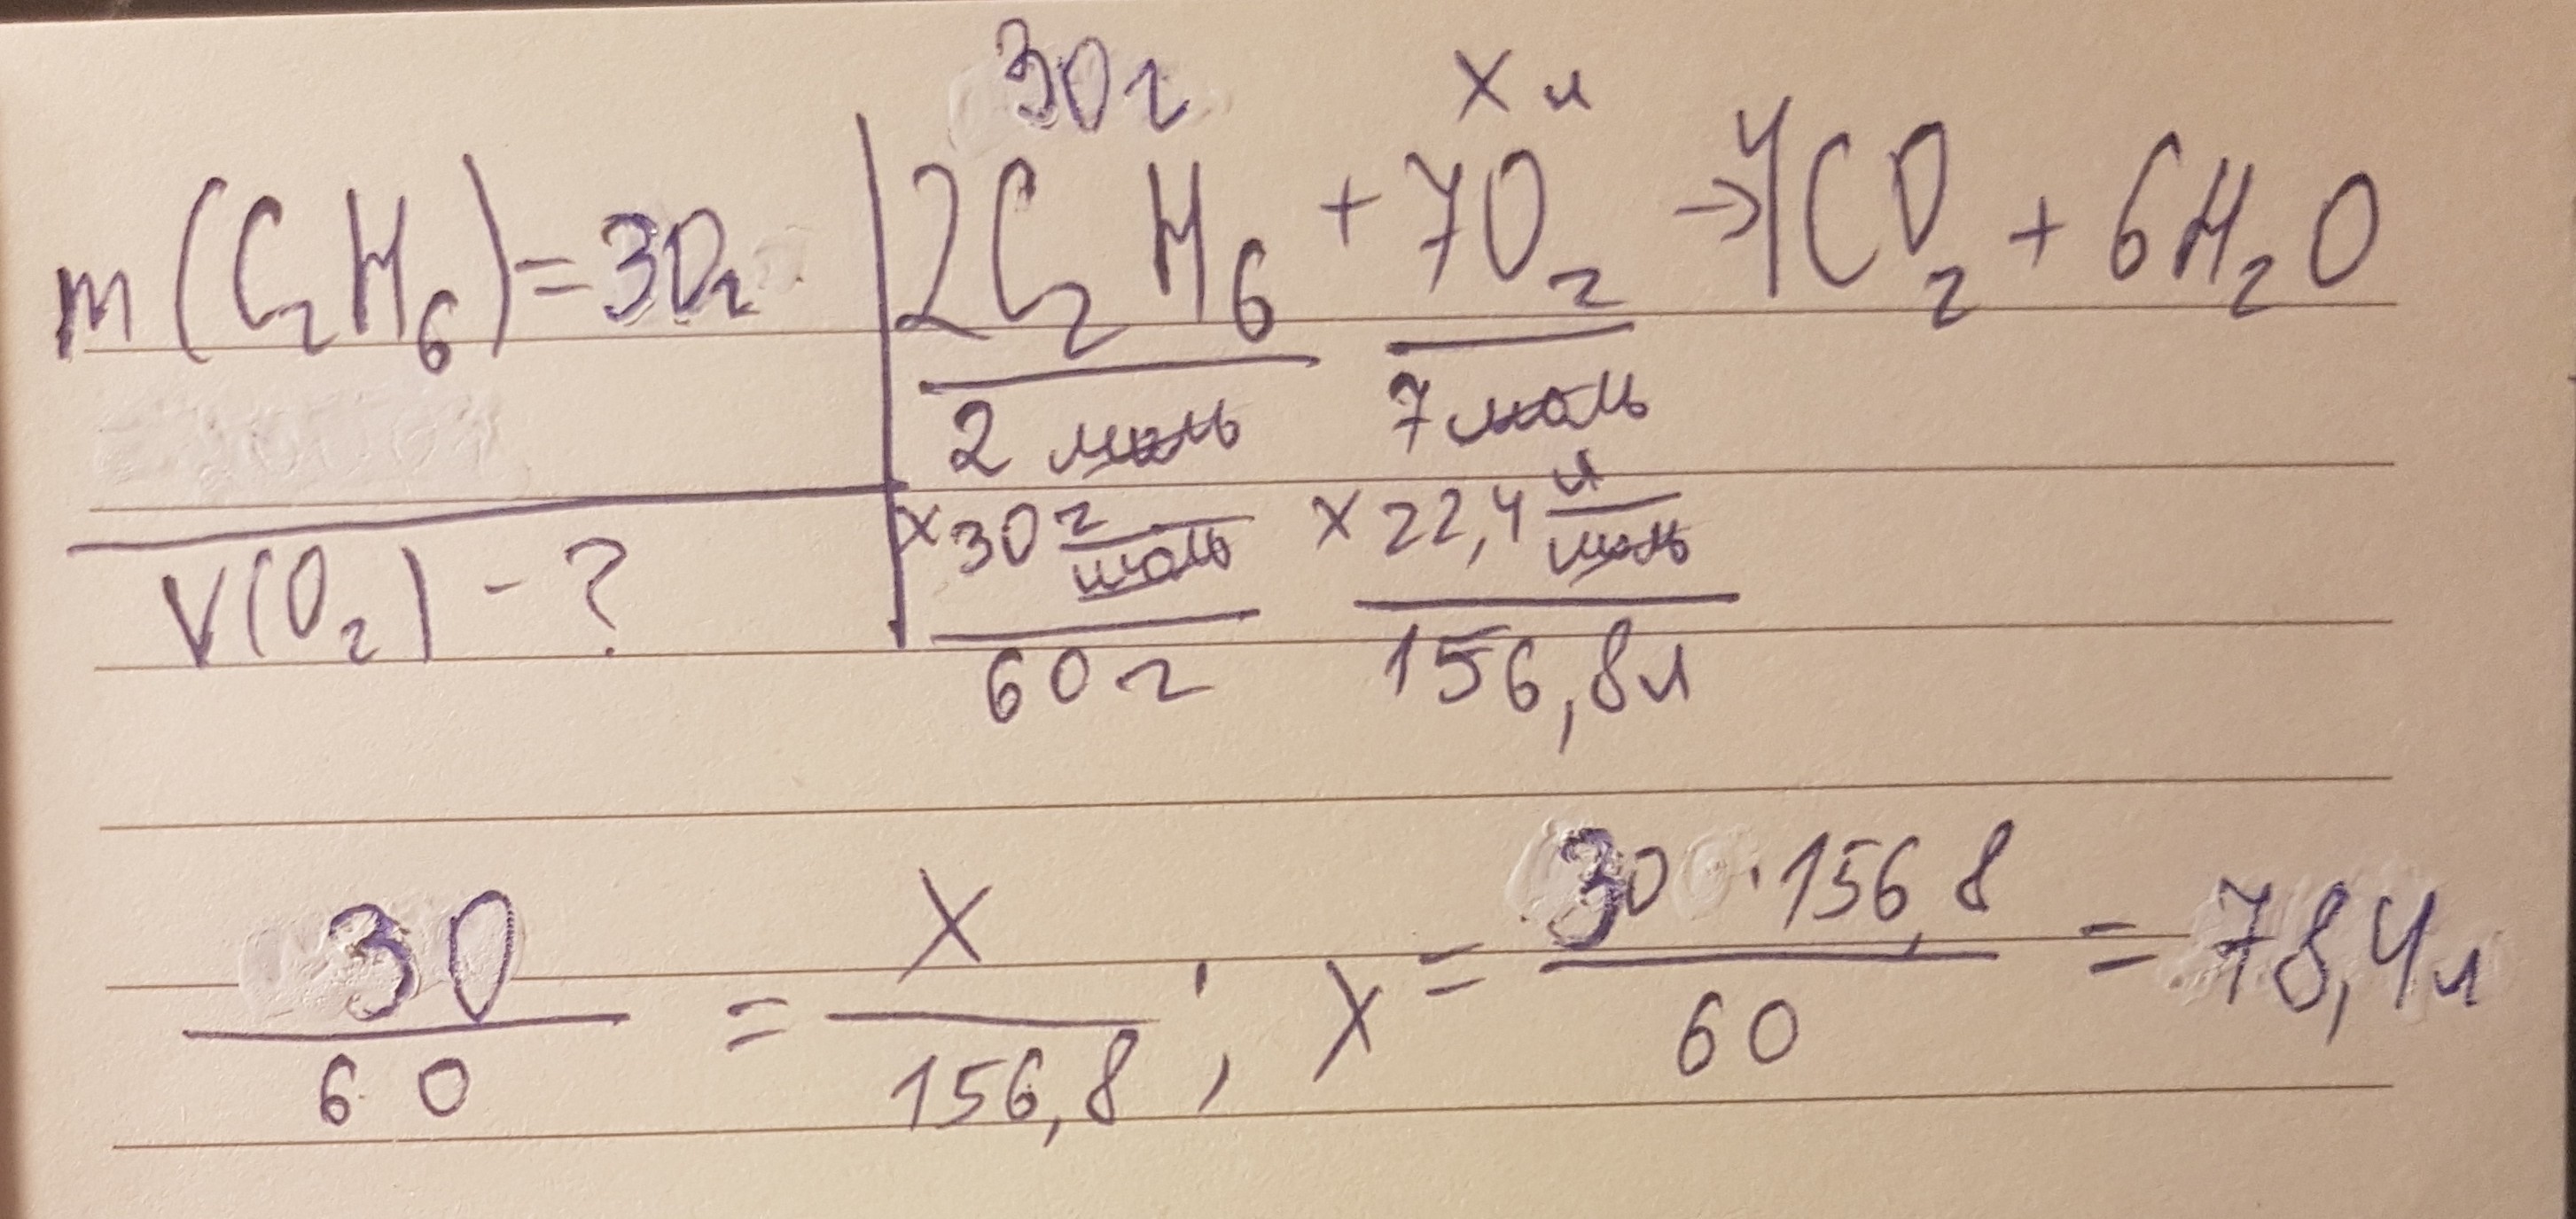 30г x л
m(C₂H₆)=30г 2C₂H₆ + 7O₂ → 4CO₂ + 6H₂O
2 моль 7 моль
V(O₂) - ? ×30 г/моль ×22,4 л/моль
60 г 156,8 л
30/60 = x/156,8 ; x = 30·156,8/60 = 78,4 л